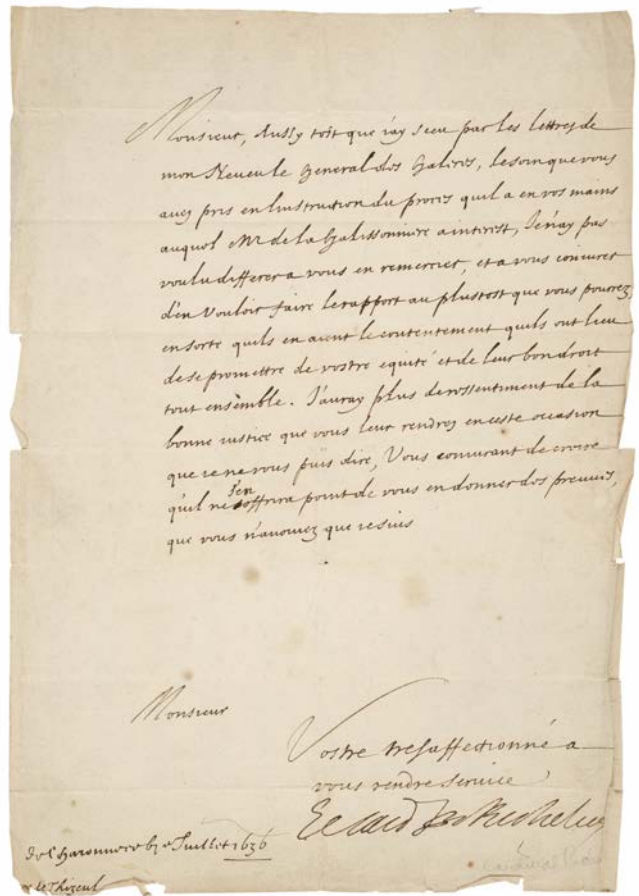 Monsieur, Aussy tost que i'ay sceu par les lettres de
mon Neueu le General des Galeres, le soin que vous
auez pris en l'instruction du proces quil a en vos mains
auquel Mr de la Galissonniere a interest, Je n'ay pas
voulu differer a vous en remercier, et a vous coniurer
d'en vouloir faire le rapport au plustost que vous pourrez,
en sorte quils en aient le contentement quils ont lieu
de se promettre de vostre equité et de leur bon droit
tout ensemble. J'auray plus de ressentiment de la
bonne iustice que vous leur rendrez en ceste occasion
que ie ne vous puis dire, Vous coniurant de croire
qu'il ne s'en offrira point de vous en donner des preuues,
que vous n'auouiez que ie suis
Monsieur
Vostre tresaffectionné a
vous rendre seruice
Le Card de Richelieu
De Charonne ce Juillet 1636